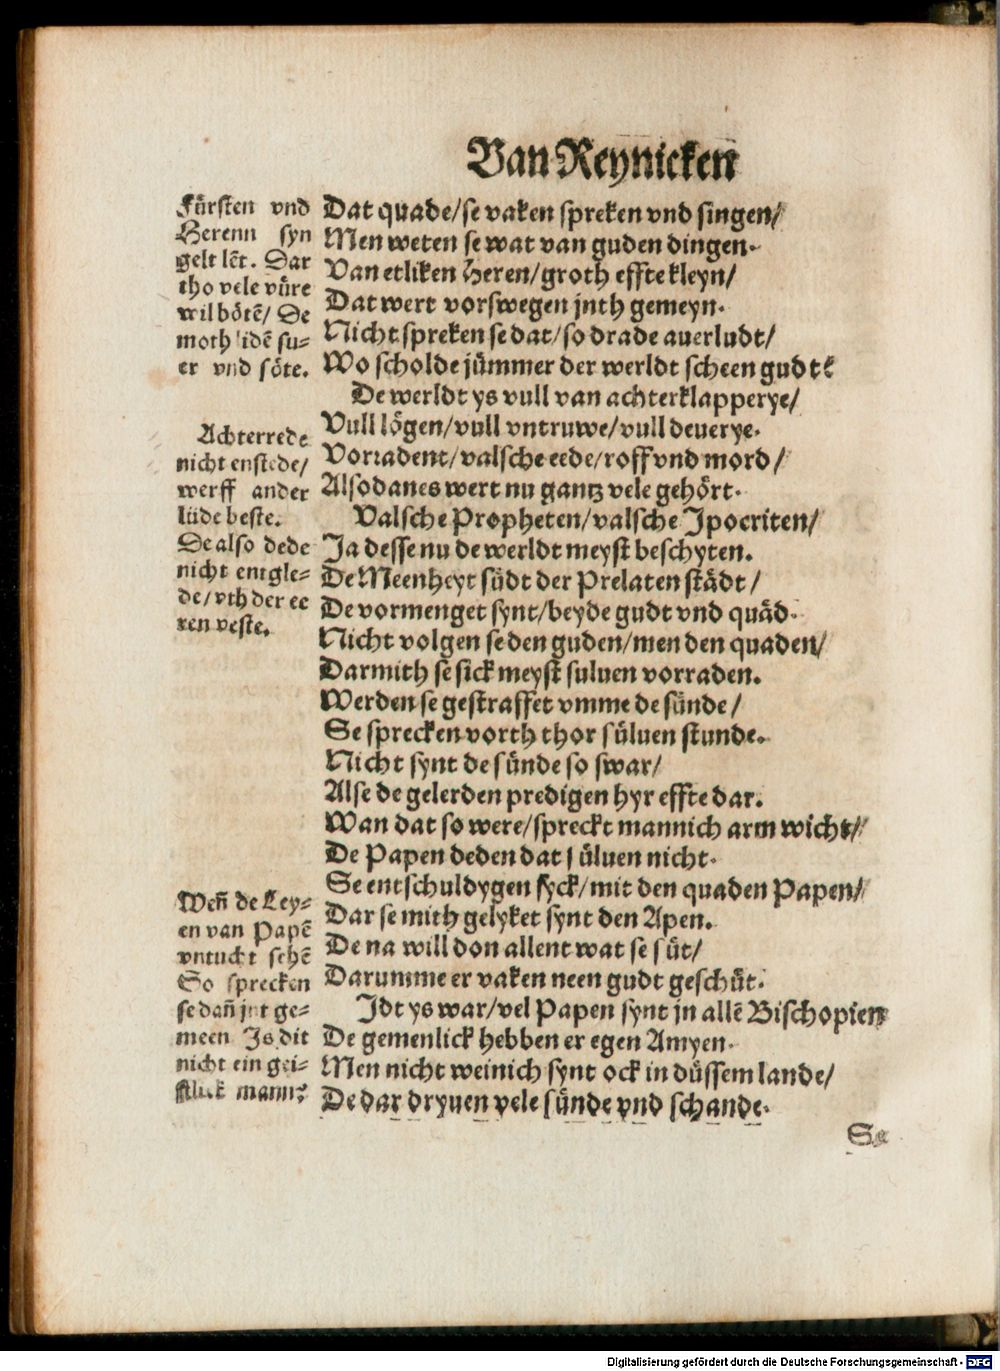 Van Reynicken
Fürsten vnd
Herenn syn
gelt lēt. Dar
tho vele vüre
wil bötē/ De
moth lidē su-
er vnd söte.
Achterrede
nicht enstede/
werff ander
lüde beste.
De also dede
nicht entgle-
de/ vth der ee
ren veste.
Weñ de Ley-
en van Papē
vntucht sehē
So sprecken
se dañ jnt ge-
meen Is dit
nicht ein gei-
stlick mann?
Dat quade/ se vaken spreken vnd singen/
Men weten se wat van guden dingen.
Van etliken Heren/ groth effte kleyn/
Dat wert vorswegen jnth gemeyn.
Nicht spreken se dat/ so drade auerludt/
Wo scholde jümmer der werldt scheen gudt?
De werldt ys vull van achterklapperye/
Vull lögen/ vull vntruwe/ vull deuerye.
Vorradent/ valsche eede/ roff vnd mord/
Alsodanes wert nu gantz vele gehört.
Valsche Propheten/ valsche Ipocriten/
Ja desse nu de werldt meyst beschyten.
De Meenheyt südt der Prelaten städt/
De vormenget synt/ beyde gudt vnd quäd.
Nicht volgen se den guden/ men den quaden/
Darmith se sick meyst suluen vorraden.
Werden se gestraffet vmme de sünde/
Se sprecken vorth thor süluen stunde.
Nicht synt de sünde so swar/
Alse de gelerden predigen hyr effte dar.
Wan dat so were/ spreckt mannich arm wicht/
De Papen deden dat süluen nicht.
Se entschuldygen syck/ mit den quaden Papen/
Dar se mith gelyket synt den Apen.
De na will don allent wat se süt/
Darumme er vaken neen gudt geschüt.
Idt ys war/ vel Papen synt jn allē Bischopien
De gemenlick hebben er egen Amyen.
Men nicht weinich synt ock in düssem lande/
De dar dryuen vele sünde vnd schande.
Se
Digitalisierung gefördert durch die Deutsche Forschungsgemeinschaft - DFG